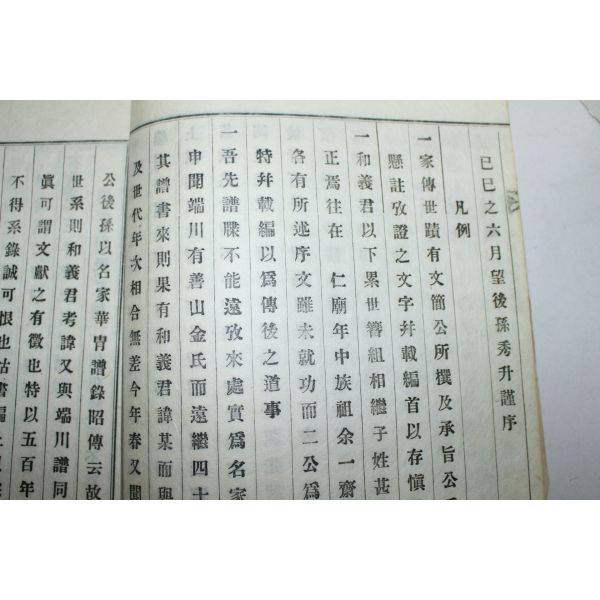 己巳之六月望後孫秀升謹序
凡例
一家傳世蹟有文簡公所撰及承旨公
懸註攷證之文字幷載編首以存愼
一和義君以下累世簪組相繼子姓甚
正焉往在 仁廟年中族祖余一齋
各有所述序文雖未就功而二公爲
特幷載編以爲傳後之道事
一吾先譜牒不能遠攷來處實爲名家
申聞端川有善山金氏而遠繼四十
其譜書來則果有和義君諱某而與
及世代年次相合無差今年春又聞
公後孫以名家華胄譜錄昭傳云故
世系則和義君考諱又與端川譜同
眞可謂文獻之有徵也特以五百年
不得系錄誠可恨也姑書編